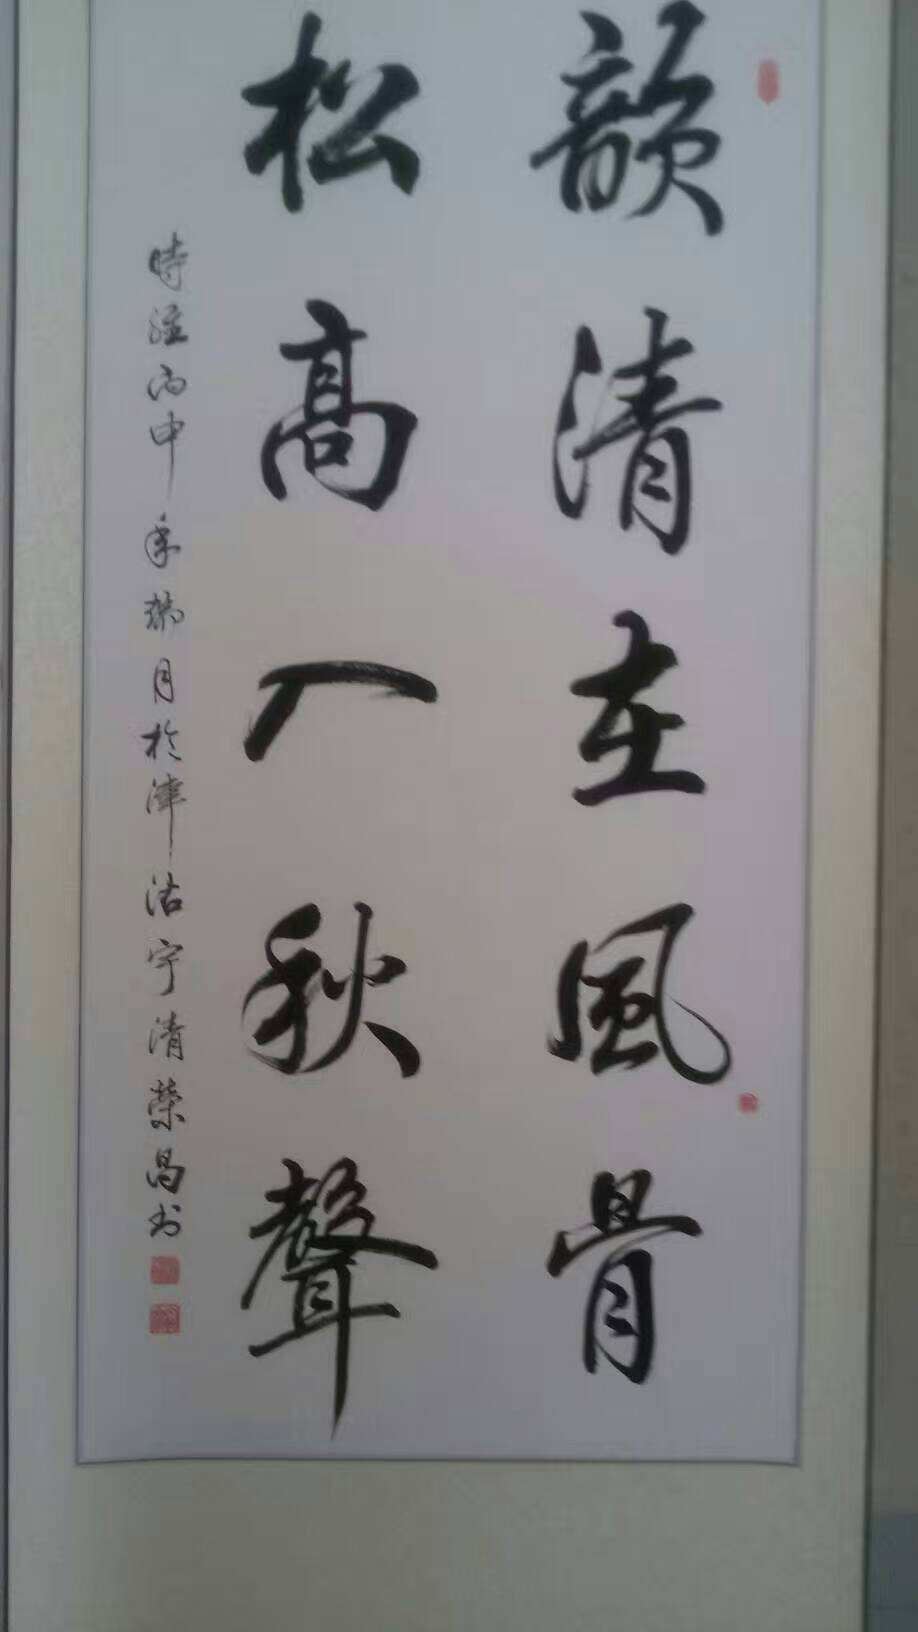 韻清在風骨
松高入秋聲
時在丙申年瑞月於津沽宇清榮昌书